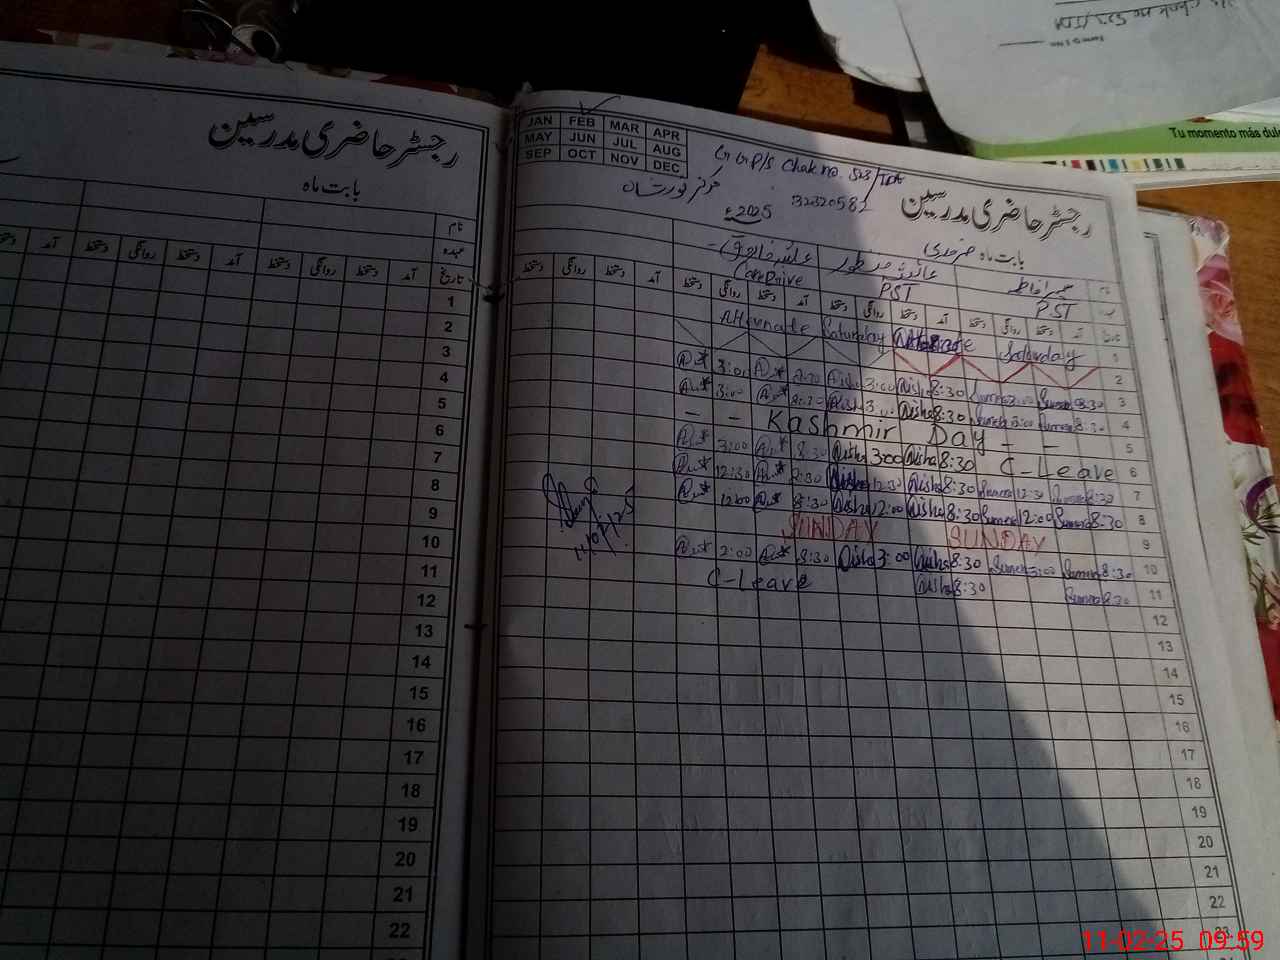 Tu momento más dul
رجسٹر حاضری مدرسین
بابت ماہ
نام
عہدہ
تاریخ آمد دستخط روانگی دستخط آمد دستخط روانگی دستخط
1
2
3
4
5
6
7
8
9
10
11
12
13
14
15
16
17
18
19
20
21
22
JAN FEB MAR APR
MAY JUN JUL AUG
SEP OCT NOV DEC
GGP/S Chak no. 523/TDA
32320581
مرکز نور شاہ
2025ء
رجسٹر حاضری مدرسین
بابت ماہ فروری
نام
PST PST Care Drive
تاریخ آمد دستخط روانگی دستخط آمد دستخط روانگی دستخط آمد دستخط روانگی دستخط آمد دستخط روانگی دستخط
Alternate Saturday Saturday 1
2
3:00 8:30 Aisha 3:00 Aisha 8:30 Sumera 3:00 Sumera 8:30 3
3:00 8:30 Aisha 3:00 Aisha 8:30 Sumera 3:00 Sumera 8:30 4
– – Kashmir Day – – 5
3:00 8:30 Aisha 3:00 Aisha 8:30 C-Leave 6
12:30 8:30 Aisha 12:30 Aisha 8:30 Sumera 12:30 Sumera 8:30 7
12:00 8:30 Aisha 12:00 Aisha 8:30 Sumera 12:00 Sumera 8:30 8
SUNDAY SUNDAY 9
2:00 8:30 Aisha 3:00 Aisha 8:30 Sumera 3:00 Sumera 8:30 10
C-Leave Aisha 8:30 Sumera 8:30 11
12
13
14
15
16
17
18
19
20
21
22
23
11-02-25 09:59